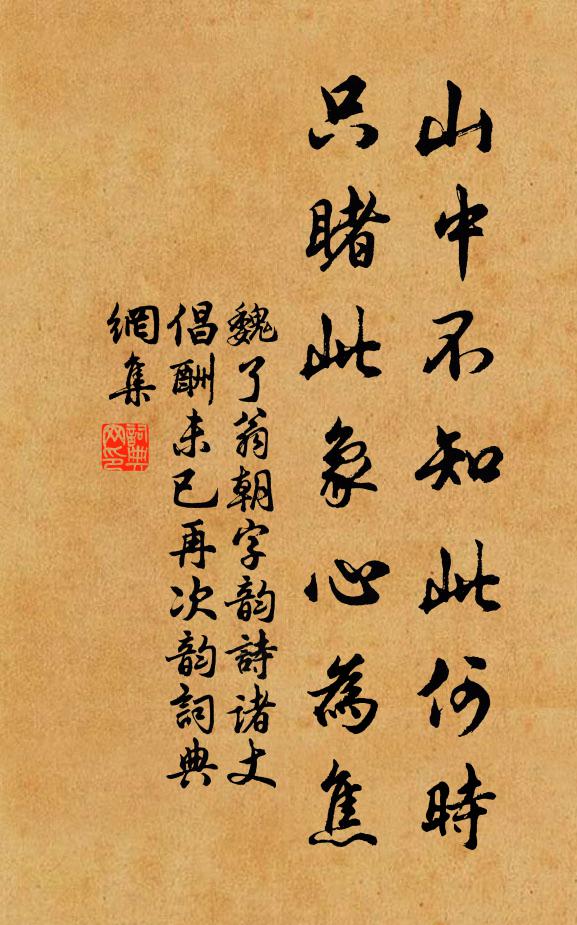 山中不知此何時
只睹此象心為焦
魏了翁朝字韵詩诸丈
倡酬未已再次韵詞典
網集
詞典網印